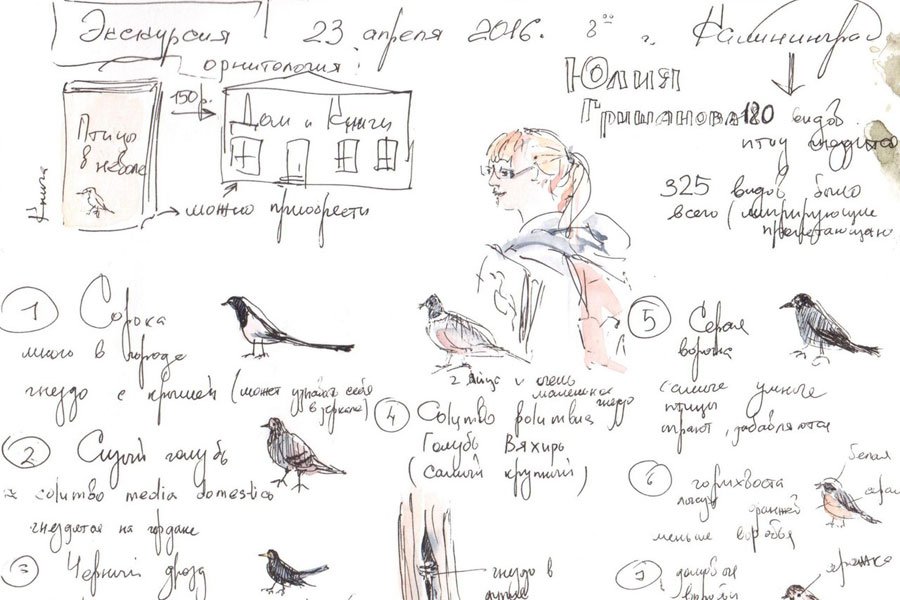 Экскурсия 23 апреля 2016. 8⁰⁰ г. Калининград
орнитология!
Юлия
Гришанова
180 видов
птиц гнездятся
325 видов было
всего (мигрирующие
пролетающие
Книга
Птицы
в неволе
150 р.
Дом и Книги
можно приобрести
1 Сорока
много в городе
гнездо с крышей (может узнавать себя
в зеркале)
2 Сизый голубь
columbo media domestico
гнездятся на чердаке
3 Черный дрозд
2 яйца и очень
маленькое
гнездо
4 Columbo polumbus
Голубь Вяхирь
(самый крупный)
гнездо в
5 Серая
ворона
самые умные
птицы
играют, забавляются
6 горихвоста
белая
серая
меньше воробья
7